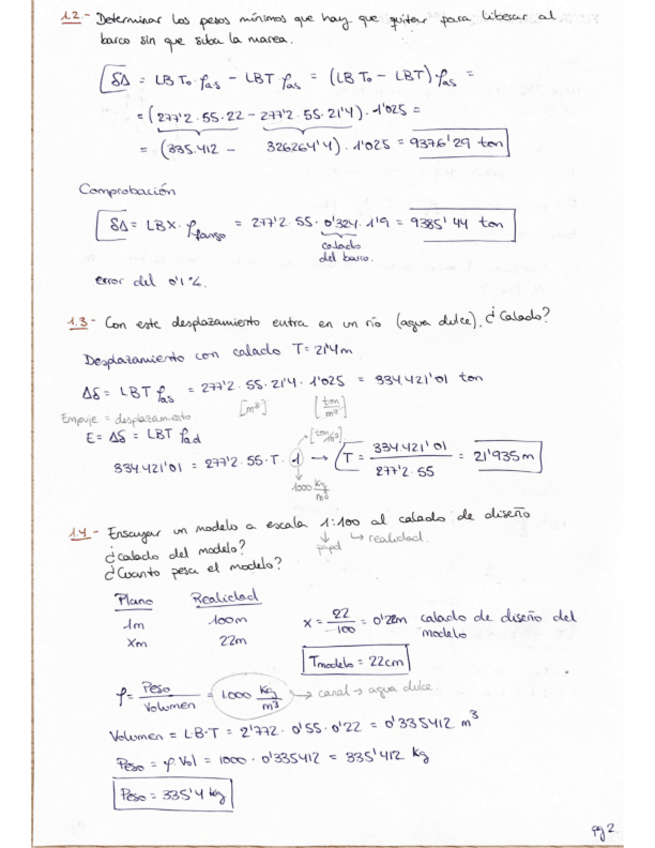 1.2.- Determinar los pesos mínimos que hay que quitar para liberar al
barco sin que suba la marea.
δΔ = LBT₀·ρas - LBT·ρas = (LBT₀ - LBT)·ρas =
= (277'2·55·22 - 277'2·55·21'4)·1'025 =
= (335.412 - 326264'4)·1'025 = 9376'29 ton
Comprobación
δΔ = LBX·ρfango = 277'2·55·0'324·1'9 = 9385'44 ton
calado
del barco.
error del 0'1%.
1.3- Con este desplazamiento entra en un río (agua dulce), ¿Calado?
Desplazamiento con calado T=21'4m.
Δδ = LBT ρas = 277'2·55·21'4·1'025 = 334.421'01 ton
[m³] [ton/m³]
Empuje = desplazamiento
E = Δδ = LBT ρad
[ton/m³]
334.421'01 = 277'2·55·T·1 → T = 334.421'01 / 277'2·55 = 21'935m
1000 kg/m³
1.4.- Ensayar un modelo a escala 1:100 al calado de diseño
papel realidad.
¿Calado del modelo?
¿Cuanto pesa el modelo?
Plano Realidad
1m 100m
Xm 22m
X = 22/100 = 0'22m calado de diseño del
modelo
Tmodelo = 22cm
ρ = Peso/Volumen = 1.000 kg/m³ → canal → agua dulce
Volumen = L·B·T = 2'772·0'55·0'22 = 0'335412 m³
Peso = ρ·Vol = 1000·0'335412 = 335'412 kg
Peso = 335'4 kg
pg 2.